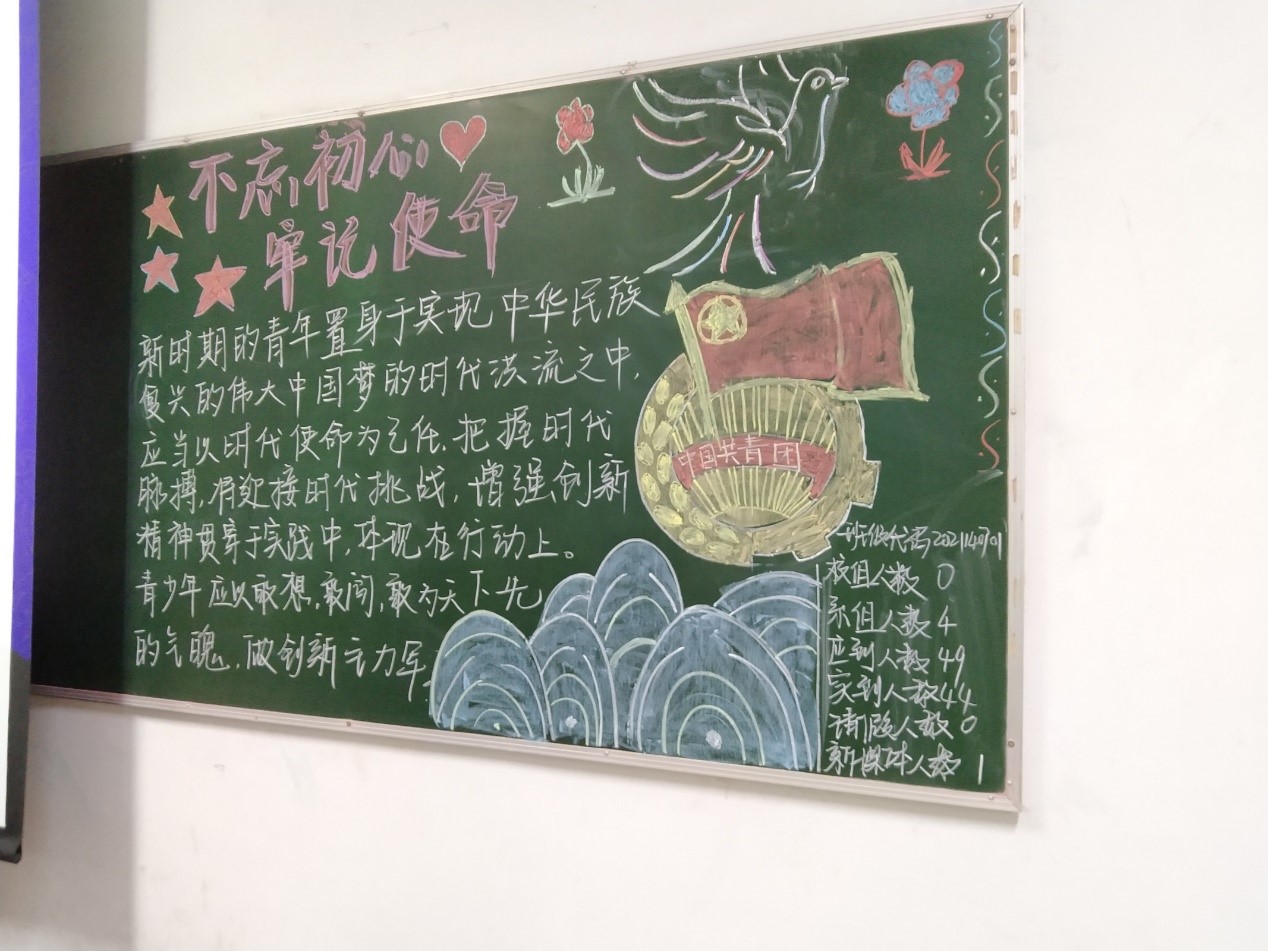 不忘初心
牢记使命
新时期的青年置身于实现中华民族
复兴的伟大中国梦的时代洪流之中,
应当以时代使命为己任,把握时代
脉搏,有迎接时代挑战,增强创新
精神贯穿于实践中,体现在行动上。
青少年应以敢想,敢闯,敢为天下先
的气魄,做创新主力军。
中国共青团
班级代码2021140701
校组人数 0
系组人数 4
应到人数 49
实到人数 44
请假人数 0
人数 1